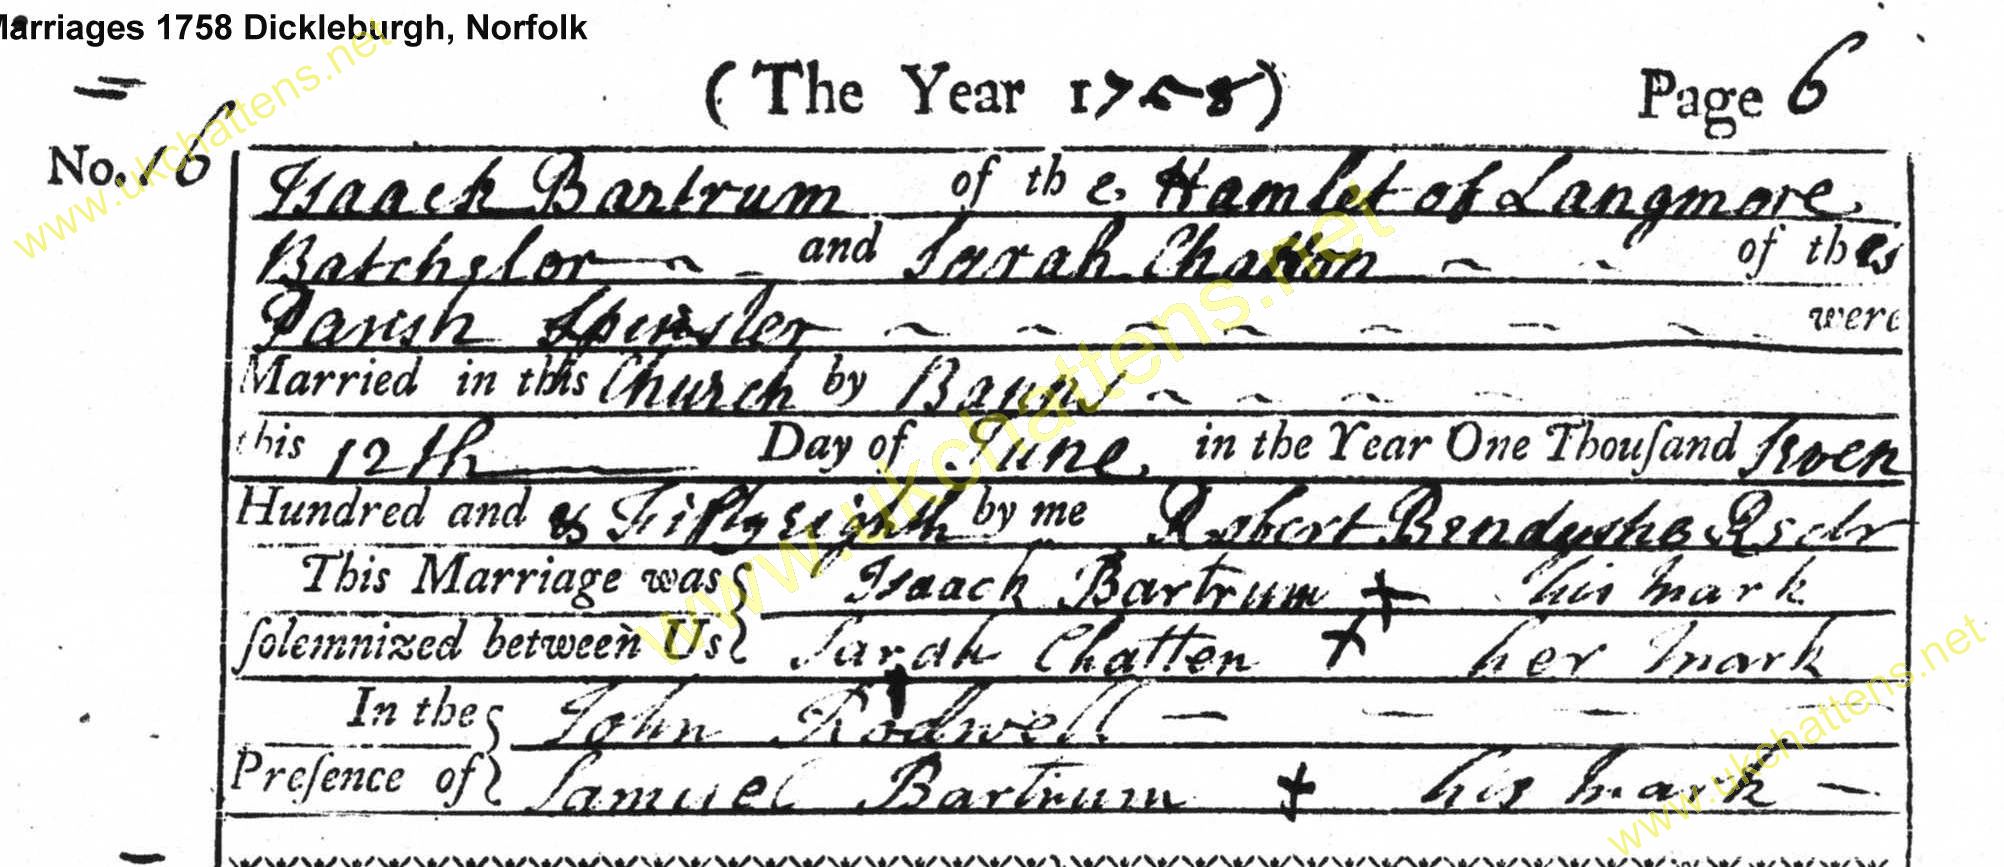 Marriages 1758 Dickleburgh, Norfolk
(The Year 1758) Page 6
No. 16
Isaack Bartrum of the Hamlet of Langmore
Batchelor and Sarah Chatton of this
Parish Spinster were
Married in this Church by Banns
this 12th Day of June in the Year One Thouſand Seven
Hundred and & Fifty Eighth by me Robert Bendyshe Rectr
This Marriage was Isaack Bartrum + his mark
ſolemnized between Us Sarah Chatten + her mark
In the John Rodwell
Preſence of Samuel Bartrum + his mark
www.ukchattens.net
www.ukchattens.net
www.ukchattens.net